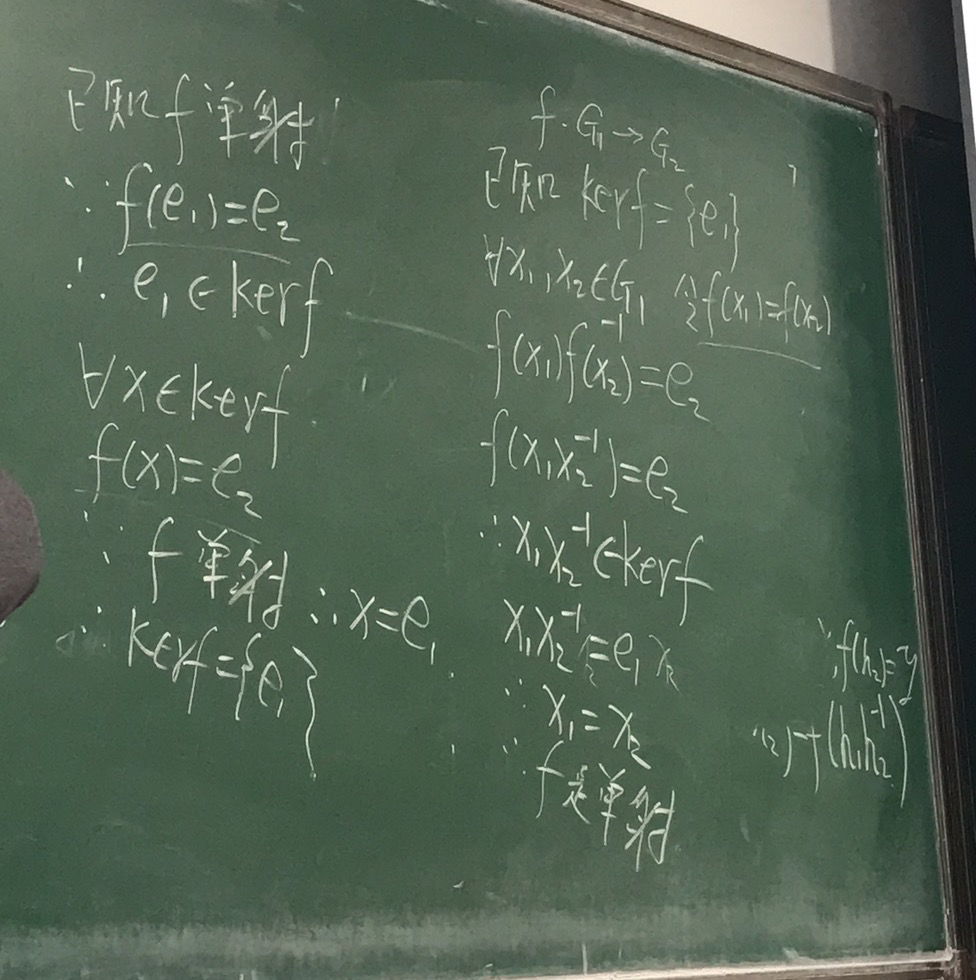 已知f单射
∵f(e₁)=e₂
∴e₁∈kerf
∀x∈kerf
f(x)=e₂
∵f单射 ∴x=e₁
∴kerf={e₁}
f:G₁→G₂
已知kerf={e₁}
∀x₁,x₂∈G₁ 令f(x₁)=f(x₂)
f(x₁)f(x₂)⁻¹=e₂
f(x₁x₂⁻¹)=e₂
∴x₁x₂⁻¹∈kerf
x₁x₂⁻¹x₂=e₁x₂
∴x₁=x₂
∴f是单射
∵f(h₂)=y
(h₁h₂⁻¹)